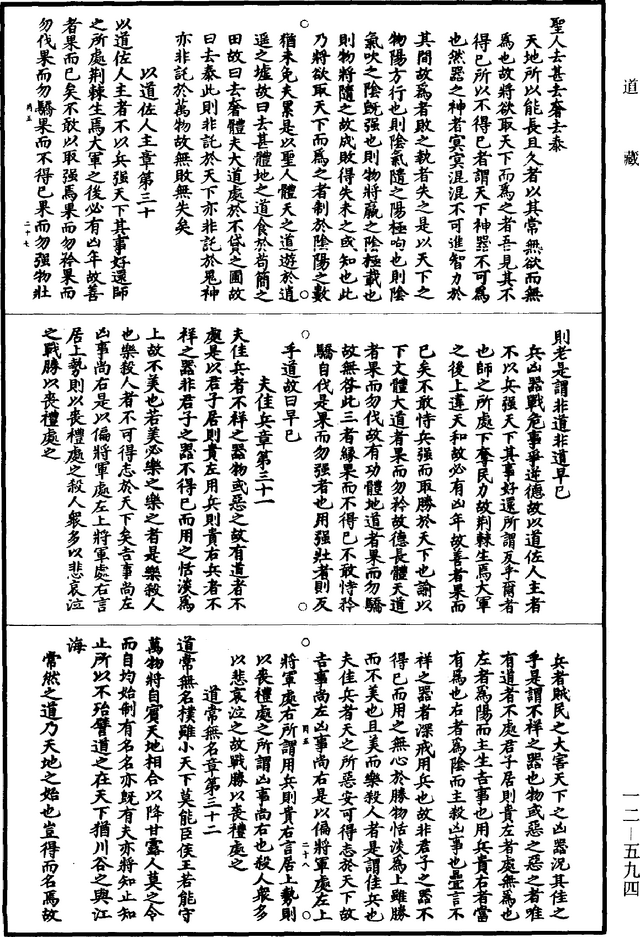 道藏
聖人去甚去奢去泰
天地所以能長且久者以其常無欲而無
為也故將欲取天下而為之者吾見其不
得已所以不得已者謂天下神器不可為
也然器之神者冥冥混混不可進智力於
其間故為者敗之執者失之是以天下之
物陽方行也則陰氣隨之陽極呴也則陰
氣吹之陰既强也則物將羸之陰極載也
則物將隳之故成敗得失未之或知也此
乃將欲取天下而為之者制於陰陽之數
猶未免夫累是以聖人體天之道遊於逍
遥之墟故曰去甚體地之道食於苟簡之
田故曰去奢體夫大道處於不貸之圃故
曰去泰此則非託於天下亦非託於鬼神
亦非託於萬物故無敗無失矣
以道佐人主章第三十
以道佐人主者不以兵强天下其事好還師
之所處荆棘生焉大軍之後必有凶年故善
者果而已矣不敢以取强焉果而勿矜果而
勿伐果而勿驕果而不得已果而勿强物壯
則老是謂非道非道早已
兵凶器戰危事爭逆德故以道佐人主者
不以兵强天下其事好還所謂反乎爾者
也師之所處下奪民力故荆棘生焉大軍
之後上違天和故必有凶年故善者果而
已矣不敢恃兵强而取勝於天下也諭以
下文體大道者果而勿矜故德長體天道
者果而勿伐故有功體地道者果而勿驕
故無咎此三者緣果而不得已不敢恃矜
驕自代是果而勿强者也用强壯者則反
乎道故曰早已
夫佳兵章第三十一
夫佳兵者不祥之器物或惡之故有道者不
處是以君子居則貴左用兵則貴右兵者不
祥之器非君子之器不得已而用之恬淡為
上故不美也若美必樂之樂之者是樂殺人
也樂殺人者不可得志於天下矣吉事尚左
凶事尚右是以偏將軍處左上將軍處右言
居上勢則以喪禮處之殺人衆多以悲哀泣
之戰勝以喪禮處之
兵者賊民之大害天下之凶器況其佳之
乎是謂不祥之器也物或惡之惡之者唯
有道者不處君子居則貴左者處無為也
左者為陽而主生吉事也用兵貴右者當
有為也右者為陰而主殺凶事也豈言不
祥之器者深戒用兵也故非君子之器不
得已而用之無心於勝物恬淡為上雖勝
而不美也且美而樂殺人者是謂佳兵也
夫佳兵者天之所惡安可得志於天下故
吉事尚左凶事尚右是以偏將軍處左上
將軍處右所謂用兵則貴右言居上勢則
以喪禮處之所謂凶事尚右也殺人衆多
以悲哀泣之故戰勝以喪禮處之
道常無名章第三十二
道常無名樸雖小天下莫能臣侯王若能守
萬物將自賓天地相合以降甘露人莫之令
而自均始制有名名亦既有夫亦將知止知
止所以不殆譬道之在天下猶川谷之與江
海
常然之道乃天地之始也豈得而名焉故
罔五
二十七
罔五
二十八
一二—五九四